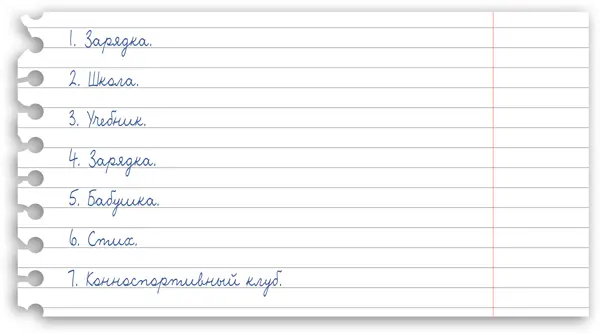 1. Зарядка.
2. Школа.
3. Учебник.
4. Зарядка.
5. Бабушка.
6. Стих.
7. Конноспортивный клуб.